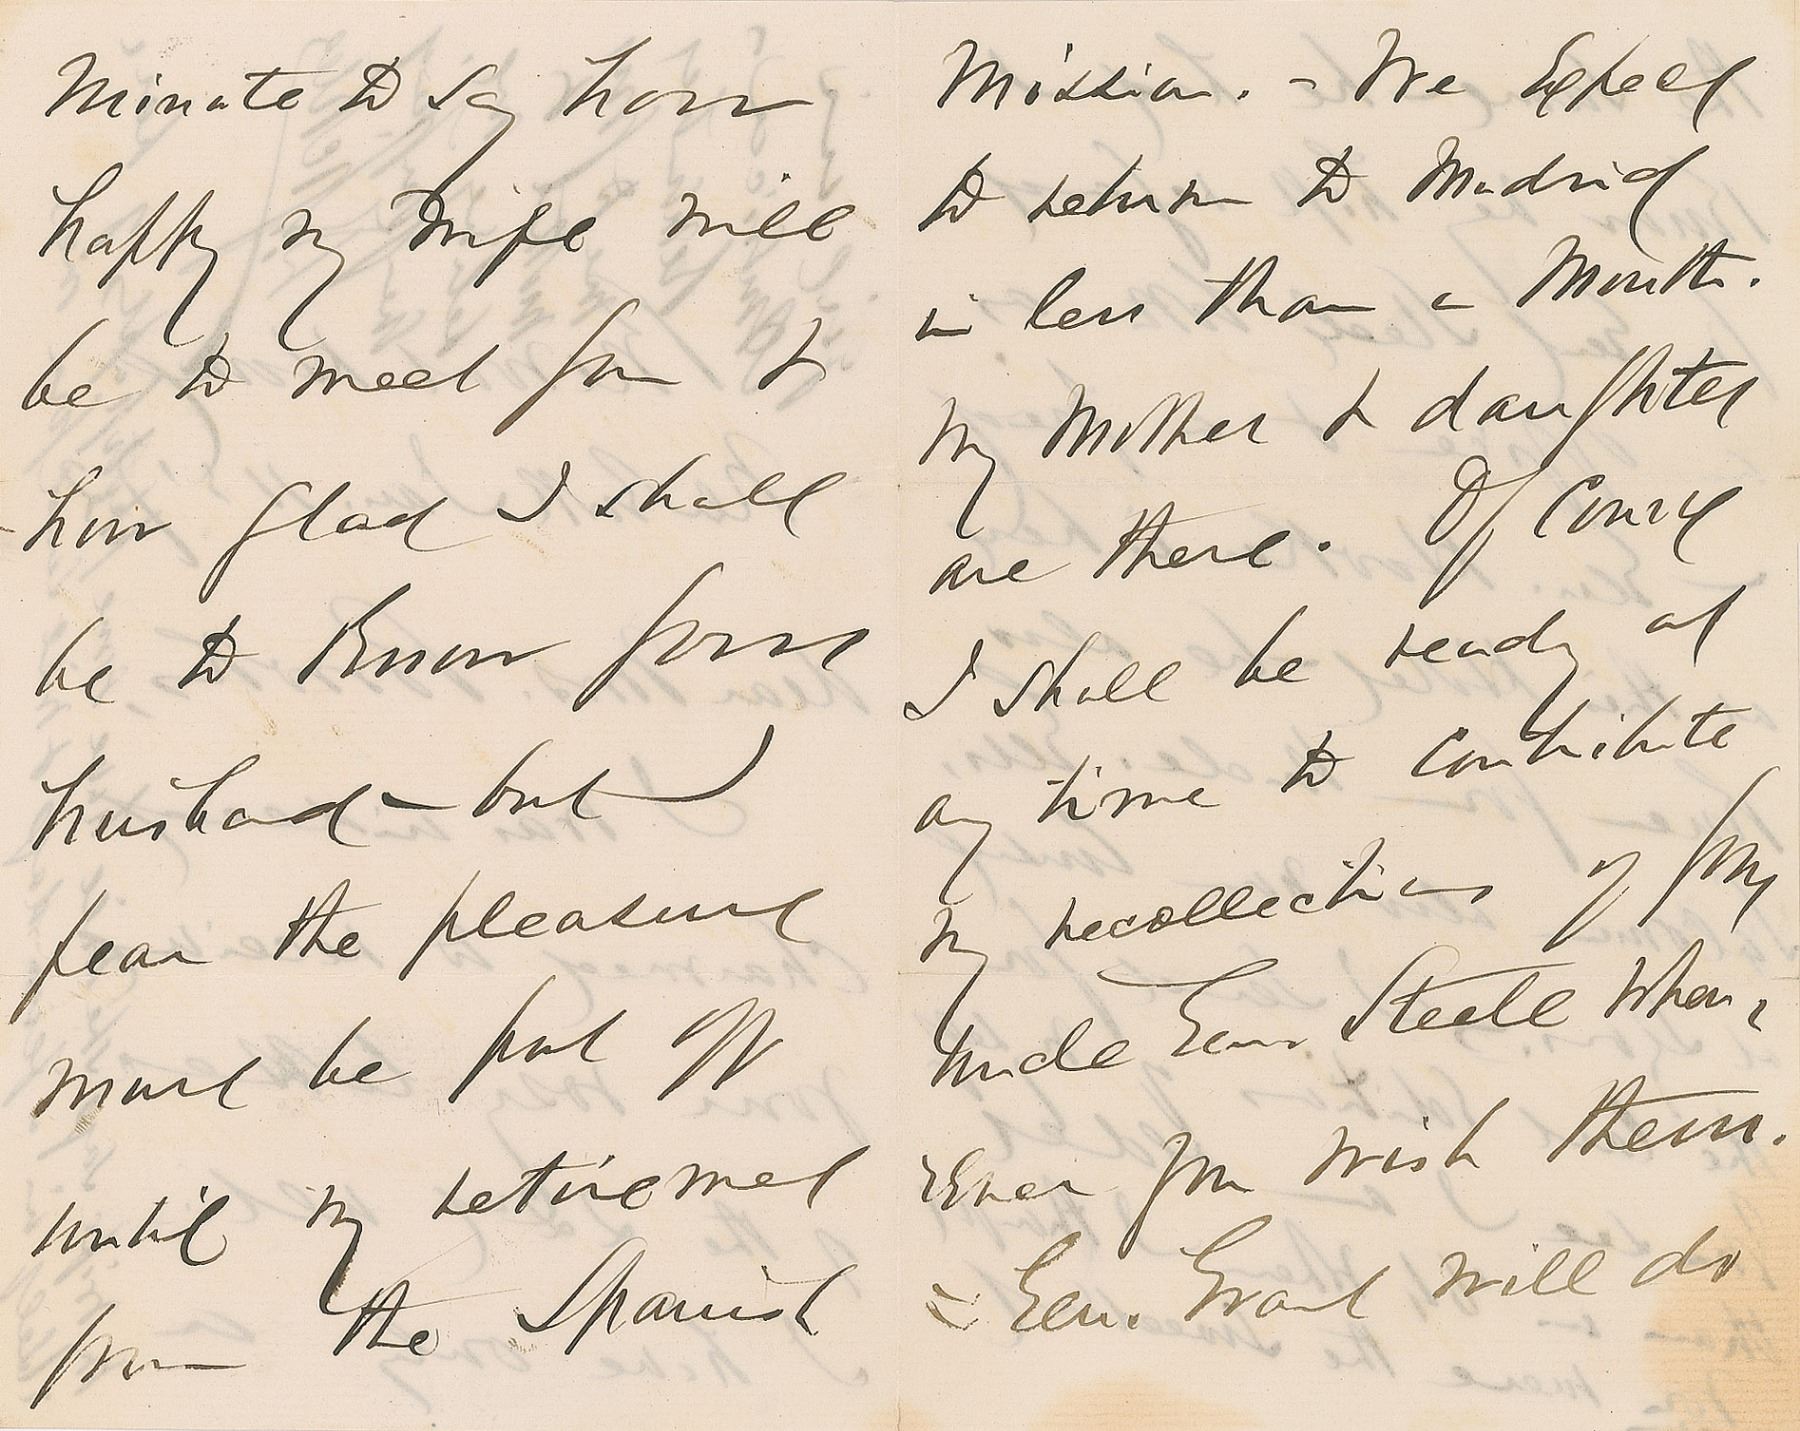 Minute to say how
happy my wife will
be to meet you &
how glad I shall
be to Know your
husband - but I
fear the pleasure
must be put off
until my retirement
from the Spanish
Mission. - We Expect
to return to Madrid
in less than a Month.
My Mother & daughter
are there. Of Course
I shall be ready at
any time to Contribute
my recollections of your
Uncle Genr. Steele When-
Ever you wish them.
- Gen. Grant will do